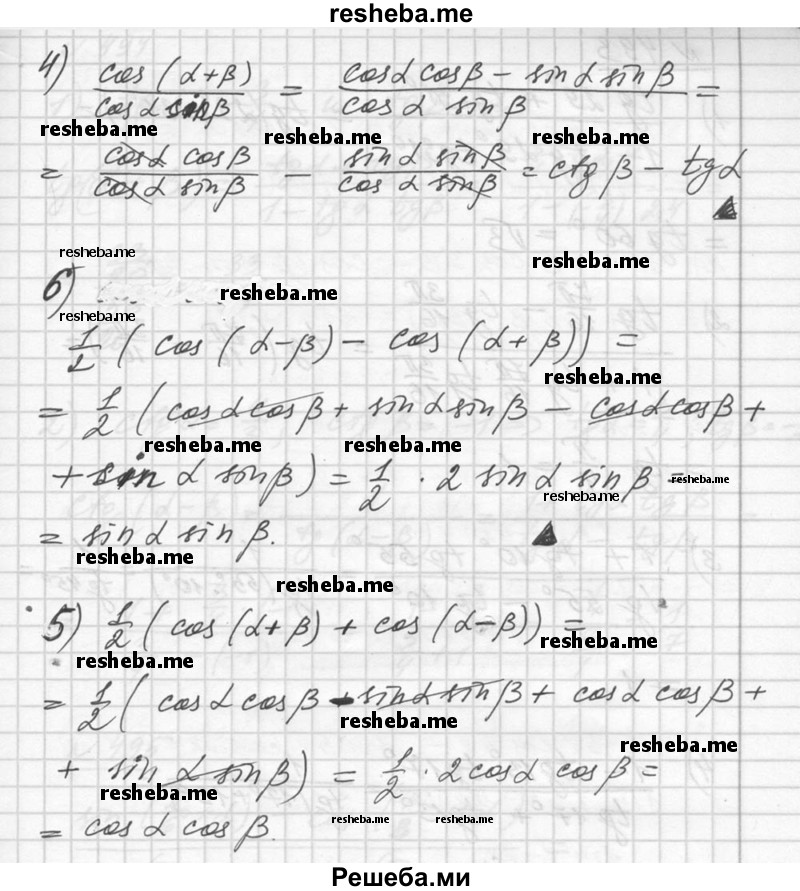 resheba.me
4) cos (α+β) / cos α sin β = cos α cos β − sin α sin β / cos α sin β =
resheba.me resheba.me resheba.me
= cos α cos β / cos α sin β − sin α sin β / cos α sin β = ctg β − tg α
resheba.me resheba.me
6) resheba.me
resheba.me
1/2 ( cos (α−β) − cos (α+β)) =
resheba.me
= 1/2 ( cos α cos β + sin α sin β − cos α cos β +
resheba.me resheba.me
+ sin α sin β ) = 1/2 · 2 sin α sin β =
resheba.me resheba.me
= sin α sin β.
resheba.me
resheba.me
5) 1/2 ( cos (α+β) + cos (α−β)) =
resheba.me resheba.me
= 1/2 ( cos α cos β − sin α sin β + cos α cos β +
resheba.me
resheba.me
+ sin α sin β ) = 1/2 · 2 cos α cos β =
resheba.me
= cos α cos β.
resheba.me resheba.me
Решеба.ми